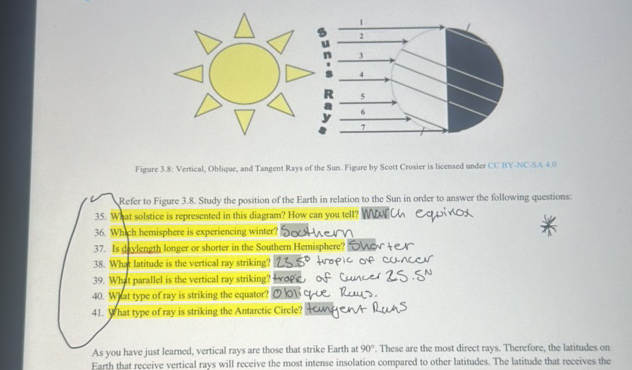 Sun's Rays
1
2
3
4
5
6
7
Figure 3.8: Vertical, Oblique, and Tangent Rays of the Sun. Figure by Scott Crosier is licensed under CC BY-NC-SA 4.0
Refer to Figure 3.8. Study the position of the Earth in relation to the Sun in order to answer the following questions:
35. What solstice is represented in this diagram? How can you tell? March equinox
36. Which hemisphere is experiencing winter? Southern
37. Is daylength longer or shorter in the Southern Hemisphere? Shorter
38. What latitude is the vertical ray striking? 23.5° tropic of cancer
39. What parallel is the vertical ray striking? tropic of Cancer 23.5N
40. What type of ray is striking the equator? Oblique Rays.
41. What type of ray is striking the Antarctic Circle? tangent Rays
As you have just learned, vertical rays are those that strike Earth at 90°. These are the most direct rays. Therefore, the latitudes on
Earth that receive vertical rays will receive the most intense insolation compared to other latitudes. The latitude that receives the